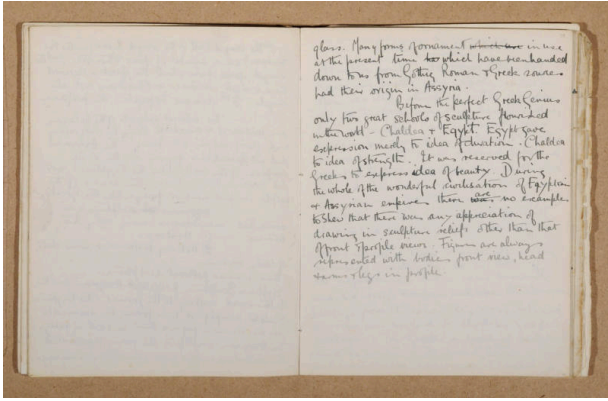 glass. Many forms of ornament which are in use
at the present time to which have been handed
down to us from Gothic, Roman & Greek sources
had their origin in Assyria.
Before the perfect Greek Genius
only two great schools of sculpture flourished
in the world - Chaldea & Egypt. Egypt gave
expression merely to idea of duration. Chaldea
to idea of strength. It was reserved for the
Greeks to express idea of beauty. During
the whole of the wonderful civilisation of Egyptian
& Assyrian empires there are no examples
to shew that there was any appreciation of
drawing in sculpture reliefs other than that
of front & profile views. Figures are always
represented with bodies front view, head
& arms & legs in profile.